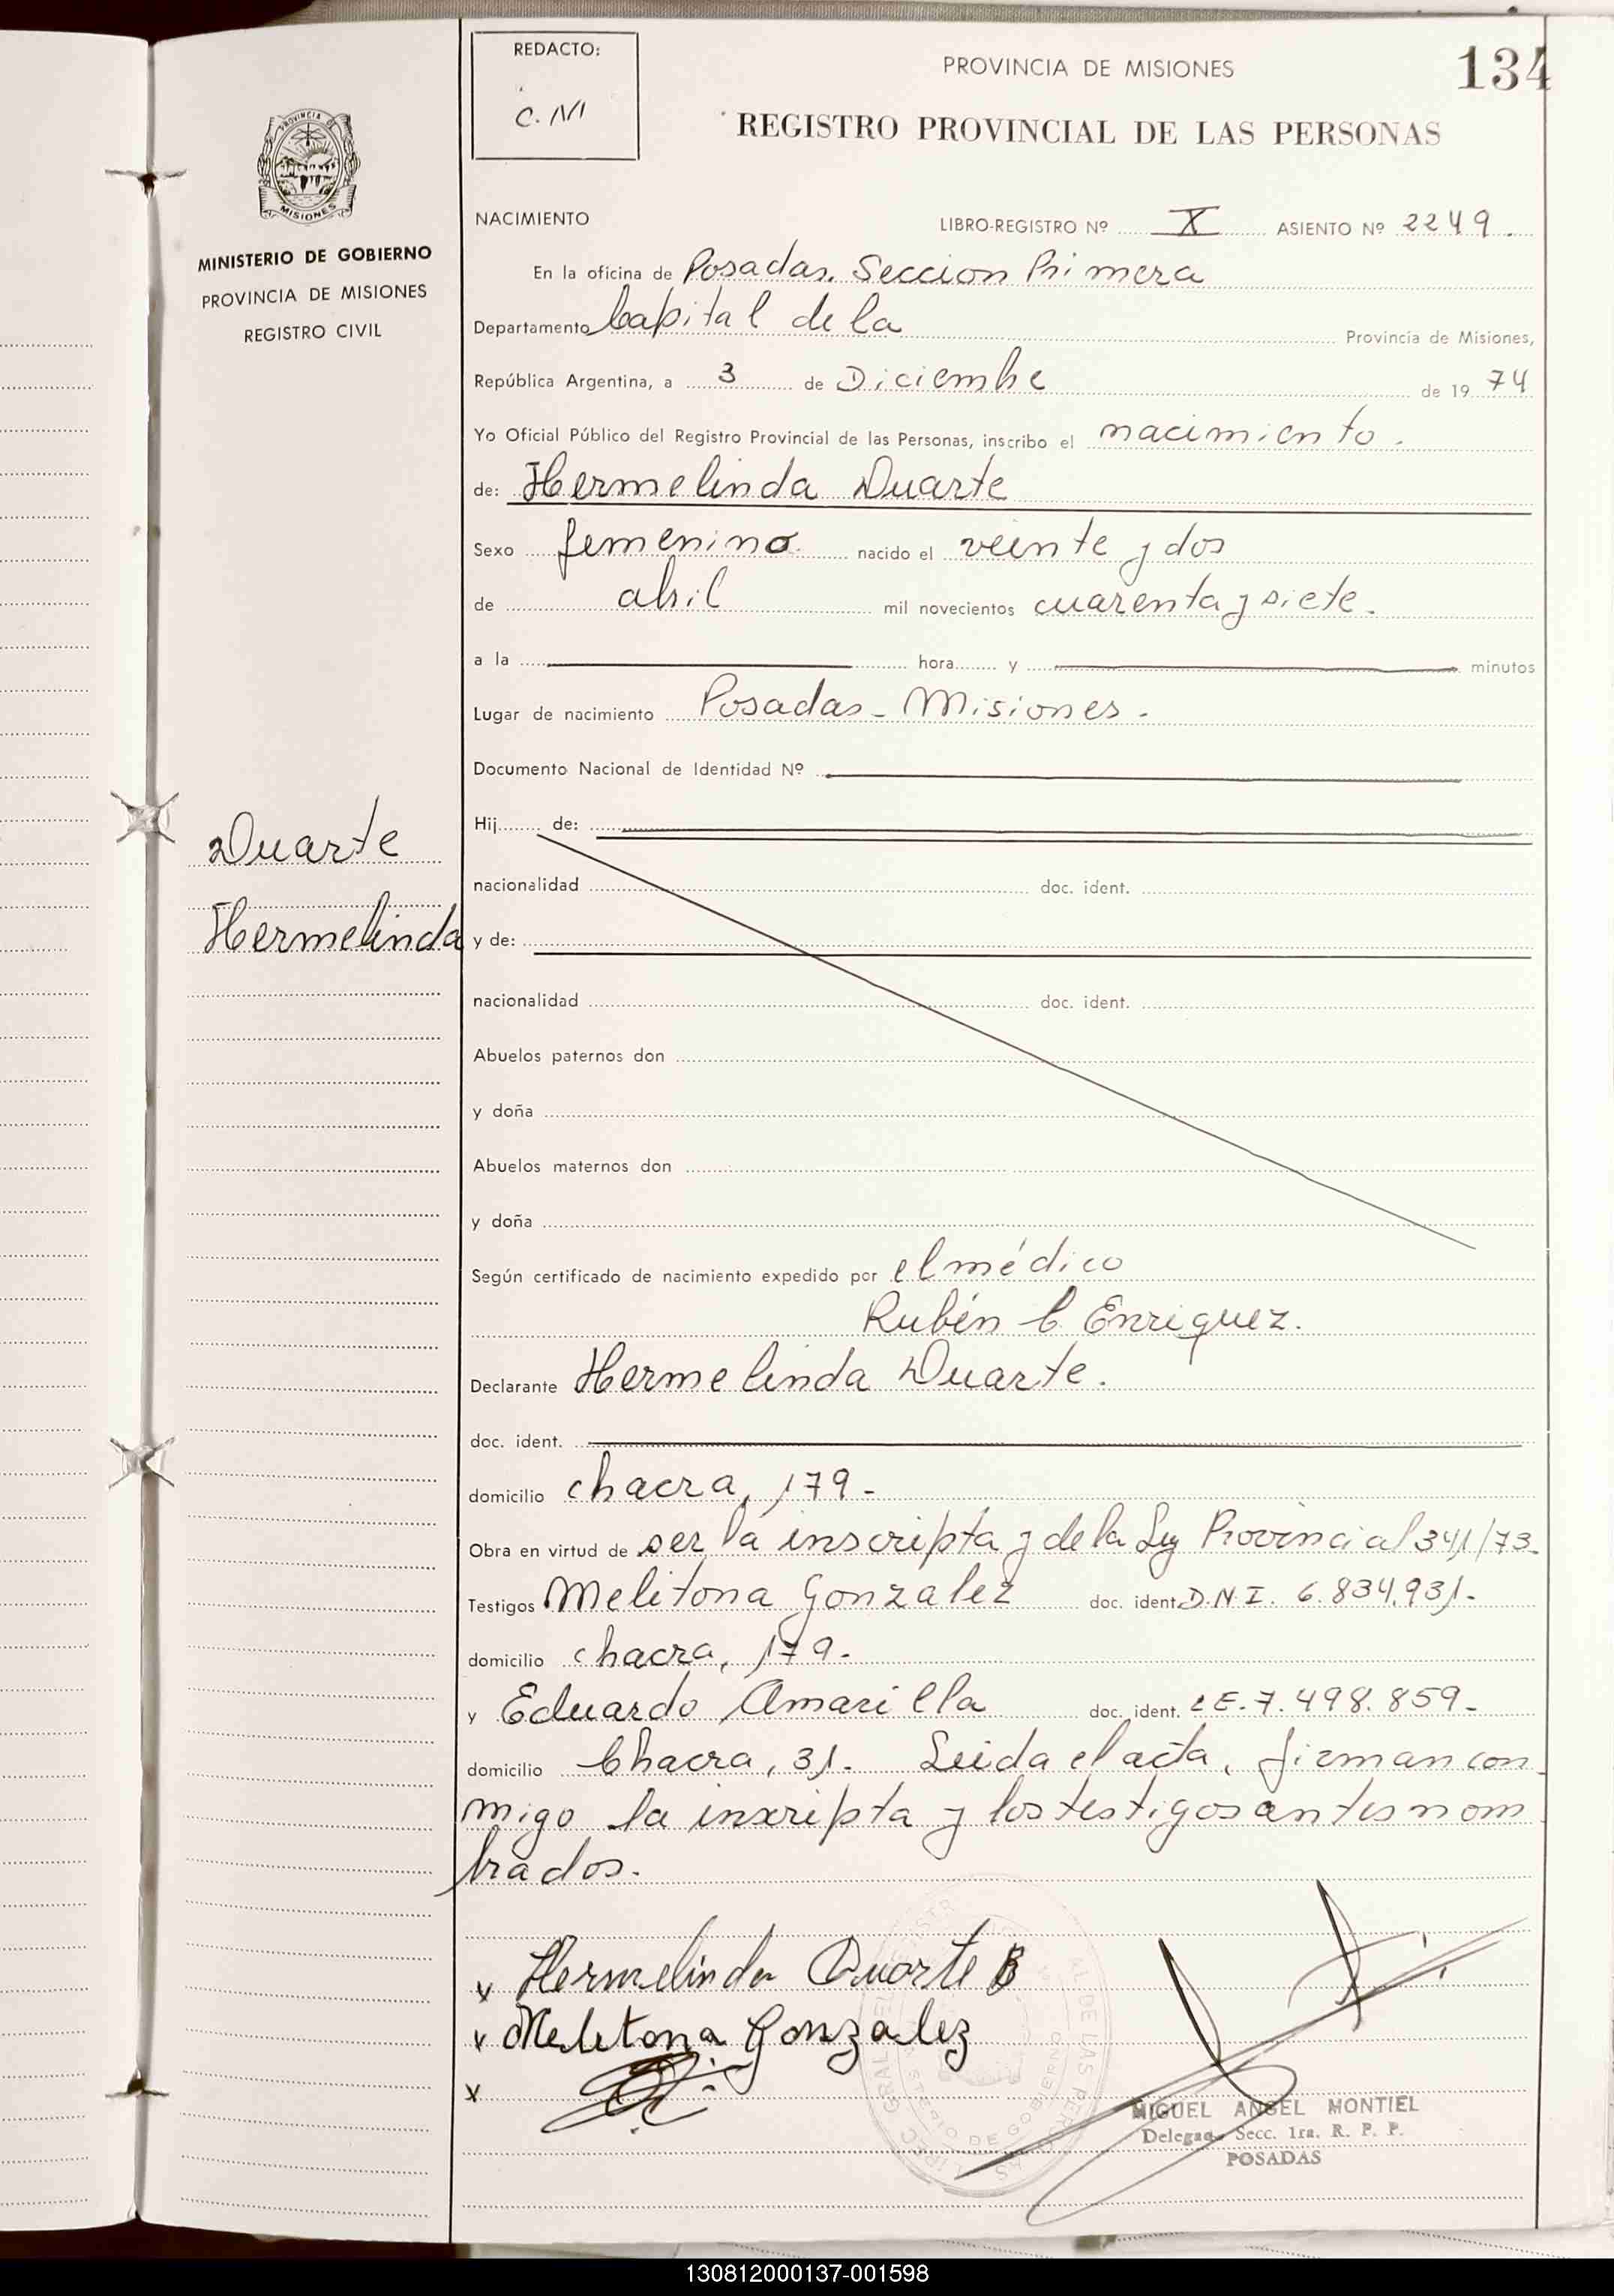 REDACTO:
C. M
PROVINCIA DE MISIONES
134
REGISTRO PROVINCIAL DE LAS PERSONAS
PROVINCIA DE
MISIONES
MINISTERIO DE GOBIERNO
PROVINCIA DE MISIONES
REGISTRO CIVIL
NACIMIENTO LIBRO-REGISTRO Nº X ASIENTO Nº 2249.
En la oficina de Posadas. Seccion Primera
Departamento Capital de la Provincia de Misiones,
República Argentina, a 3 de Diciembre de 1974
Yo Oficial Público del Registro Provincial de las Personas, inscribo el nacimiento.
de: Hermelinda Duarte
Sexo femenino nacido el veinte y dos
de abril mil novecientos cuarenta y siete.
a la hora y minutos
Lugar de nacimiento Posadas - Misiones.
Documento Nacional de Identidad Nº
Duarte
Hermelinda
Hij de:
nacionalidad doc. ident.
y de:
nacionalidad doc. ident.
Abuelos paternos don
y doña
Abuelos maternos don
y doña
Según certificado de nacimiento expedido por el médico
Rubén C. Enriquez.
Declarante Hermelinda Duarte.
doc. ident.
domicilio chacra, 179-
Obra en virtud de ser la inscripta y de la Ley Provincial 341/73-
Testigos Melitona Gonzalez doc. ident. D.N.I. 6.834.931.-
domicilio chacra, 179.-
y Eduardo Amarilla doc. ident. LE.7.498.859-
domicilio Chacra, 31.- Leida el acta, firman con
migo la inscripta y los testigos antes nom
brados.-
x Hermelinda Duarte B
x Melitona Gonzalez
x
MIGUEL ANGEL MONTIEL
Delegado Secc. 1ra. R. P. P.
POSADAS
130812000137-001598